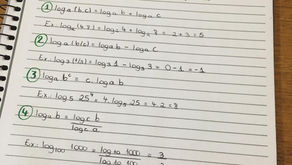 ① log a (b.c) = log a b + log a c
Ex: log₂ (4.8) = log₂ 4 + log₂ 8 = 2 + 3 = 5
② log a (b/c) = log a b - log a c
Ex: log₃ (1/3) = log₃ 1 - log₃ 3 = 0 - 1 = -1
③ log a bᶜ = c. log a b
Ex: log₅ 25⁴ = 4. log₅ 25 = 4.2 = 8
④ log a b = log c b
log c a
Ex: log₁₀₀ 1000 = log₁₀ 1000 = 3
log₁₀ 100